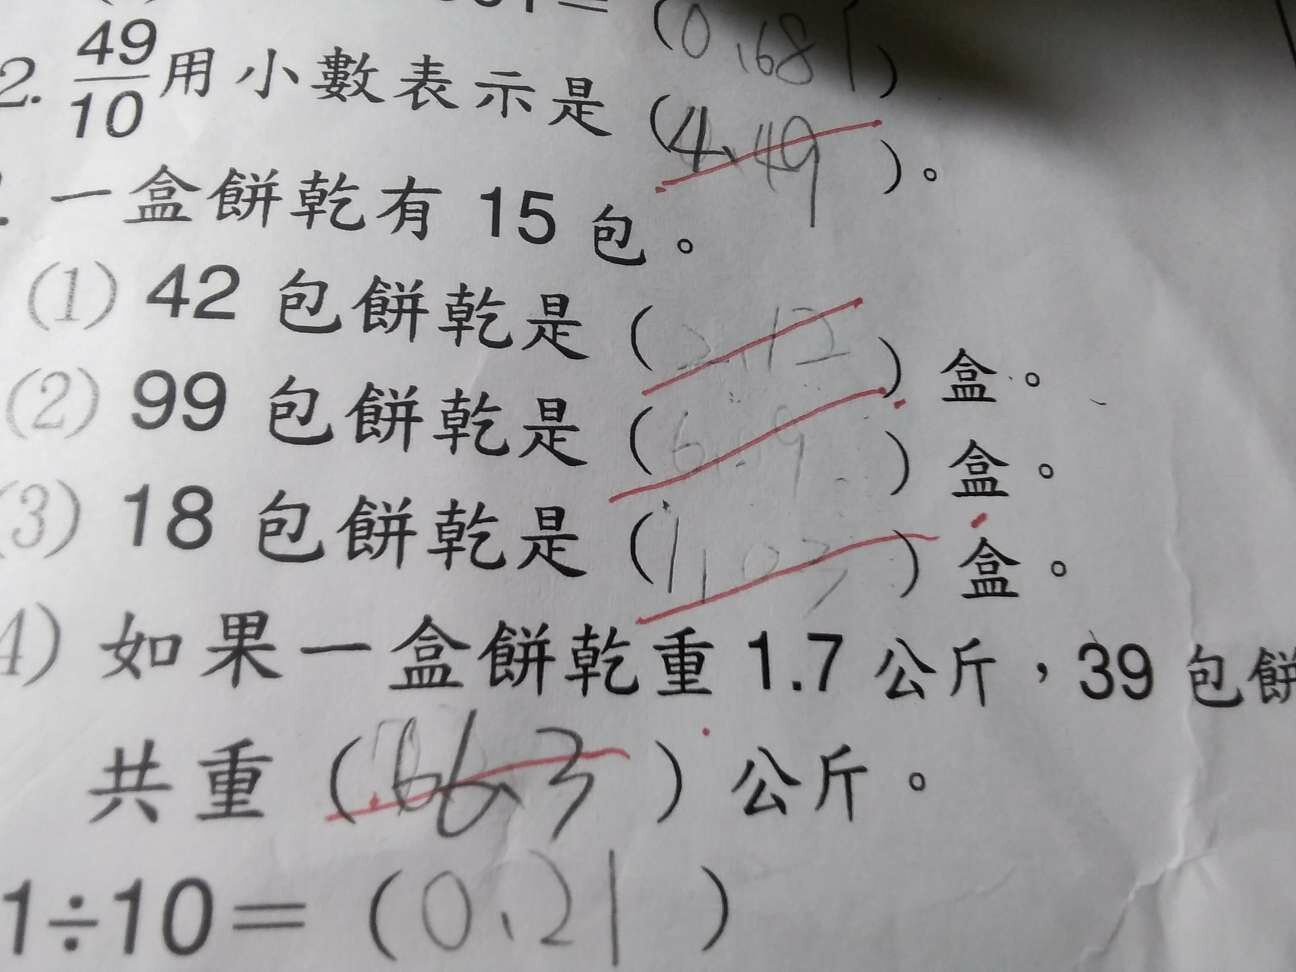 = (0.681)
2. 49/10 用小數表示是 (4.49)。
. 一盒餅乾有 15 包。
(1) 42 包餅乾是 (2.12) 盒。
(2) 99 包餅乾是 (6.9) 盒。
(3) 18 包餅乾是 (1.03) 盒。
4) 如果一盒餅乾重 1.7 公斤，39 包餅
共重 (66.3) 公斤。
1÷10= (0.21)